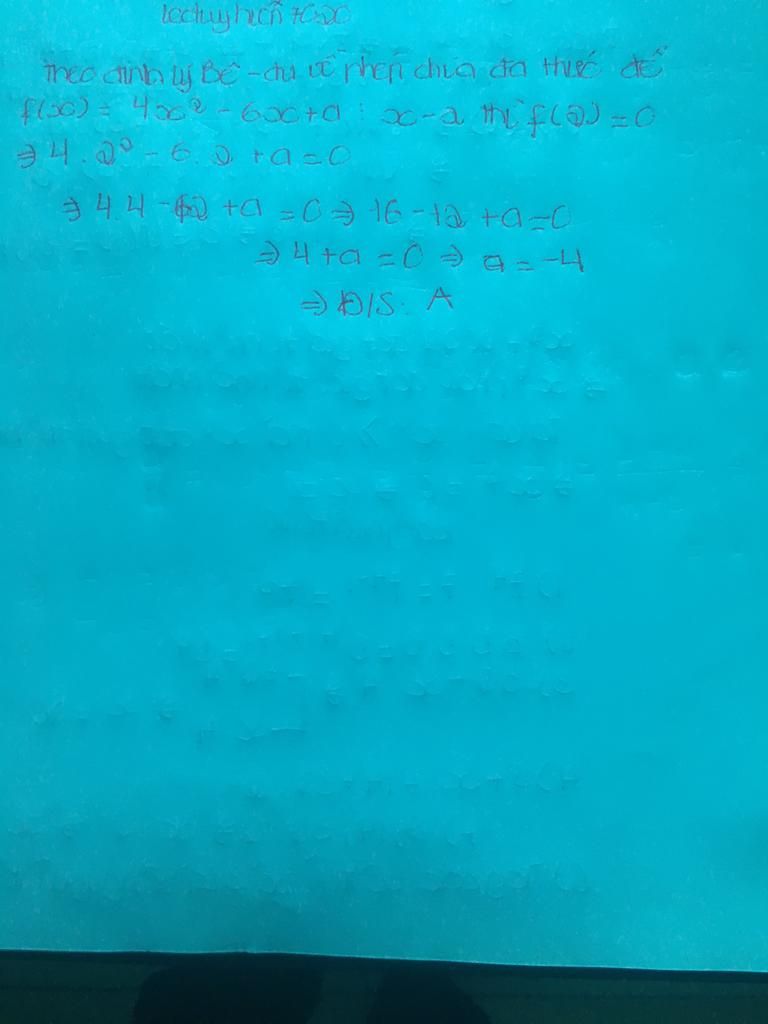 Theo định lý Bê-du về phép chia đa thức để
f(x) = 4x² - 6x + a : x - 2 thì f(2) = 0
⇒ 4.2² - 6.2 + a = 0
⇒ 4.4 - 12 + a = 0 ⇒ 16 - 12 + a = 0
⇒ 4 + a = 0 ⇒ a = -4
⇒ Đ/S: A